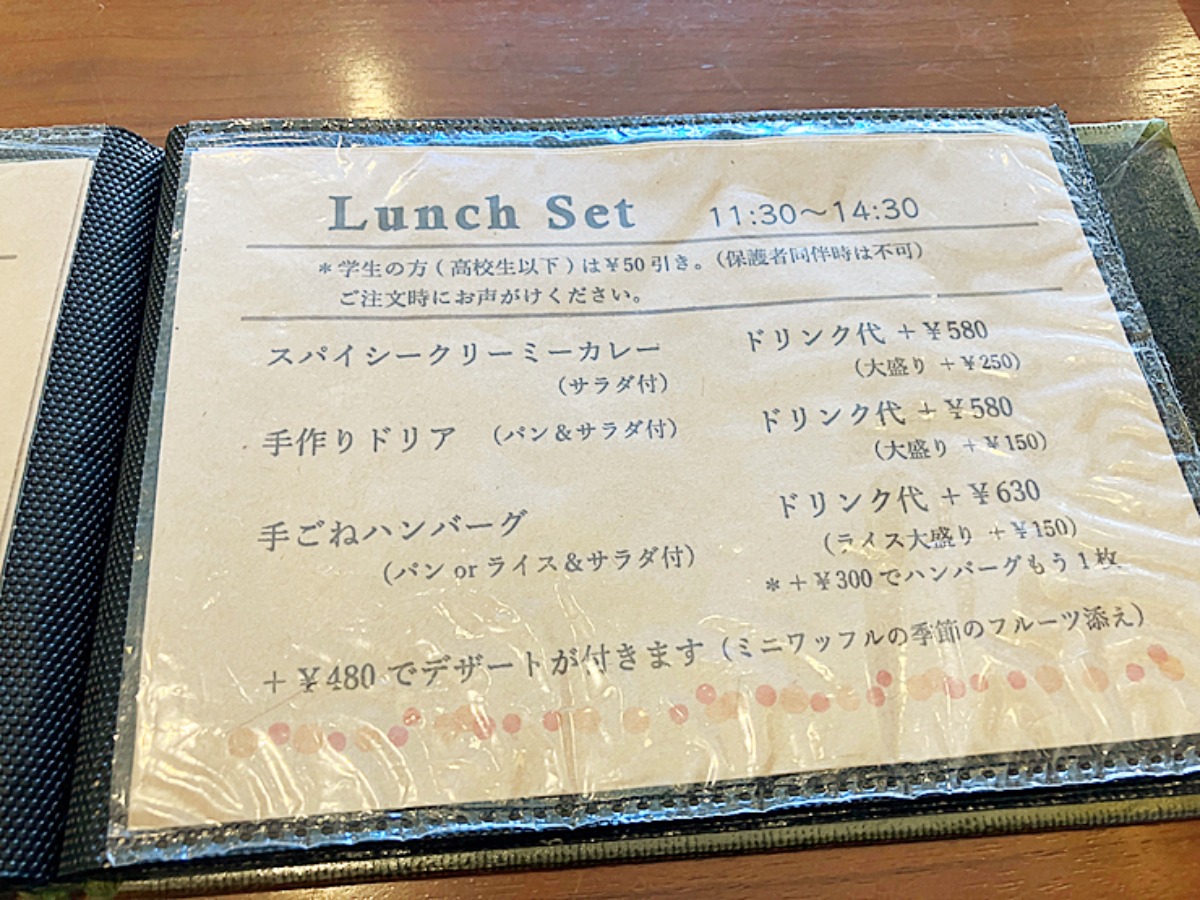 Lunch Set 11:30～14:30
＊学生の方（高校生以下）は¥50引き。（保護者同伴時は不可）
ご注文時にお声がけください。
スパイシークリーミーカレー ドリンク代 ＋¥580
（サラダ付） （大盛り ＋¥250）
手作りドリア （パン＆サラダ付） ドリンク代 ＋¥580
（大盛り ＋¥150）
手ごねハンバーグ ドリンク代 ＋¥630
（パン or ライス＆サラダ付） （ライス大盛り ＋¥150）
＊＋¥300でハンバーグもう1枚
＋¥480でデザートが付きます（ミニワッフルの季節のフルーツ添え）